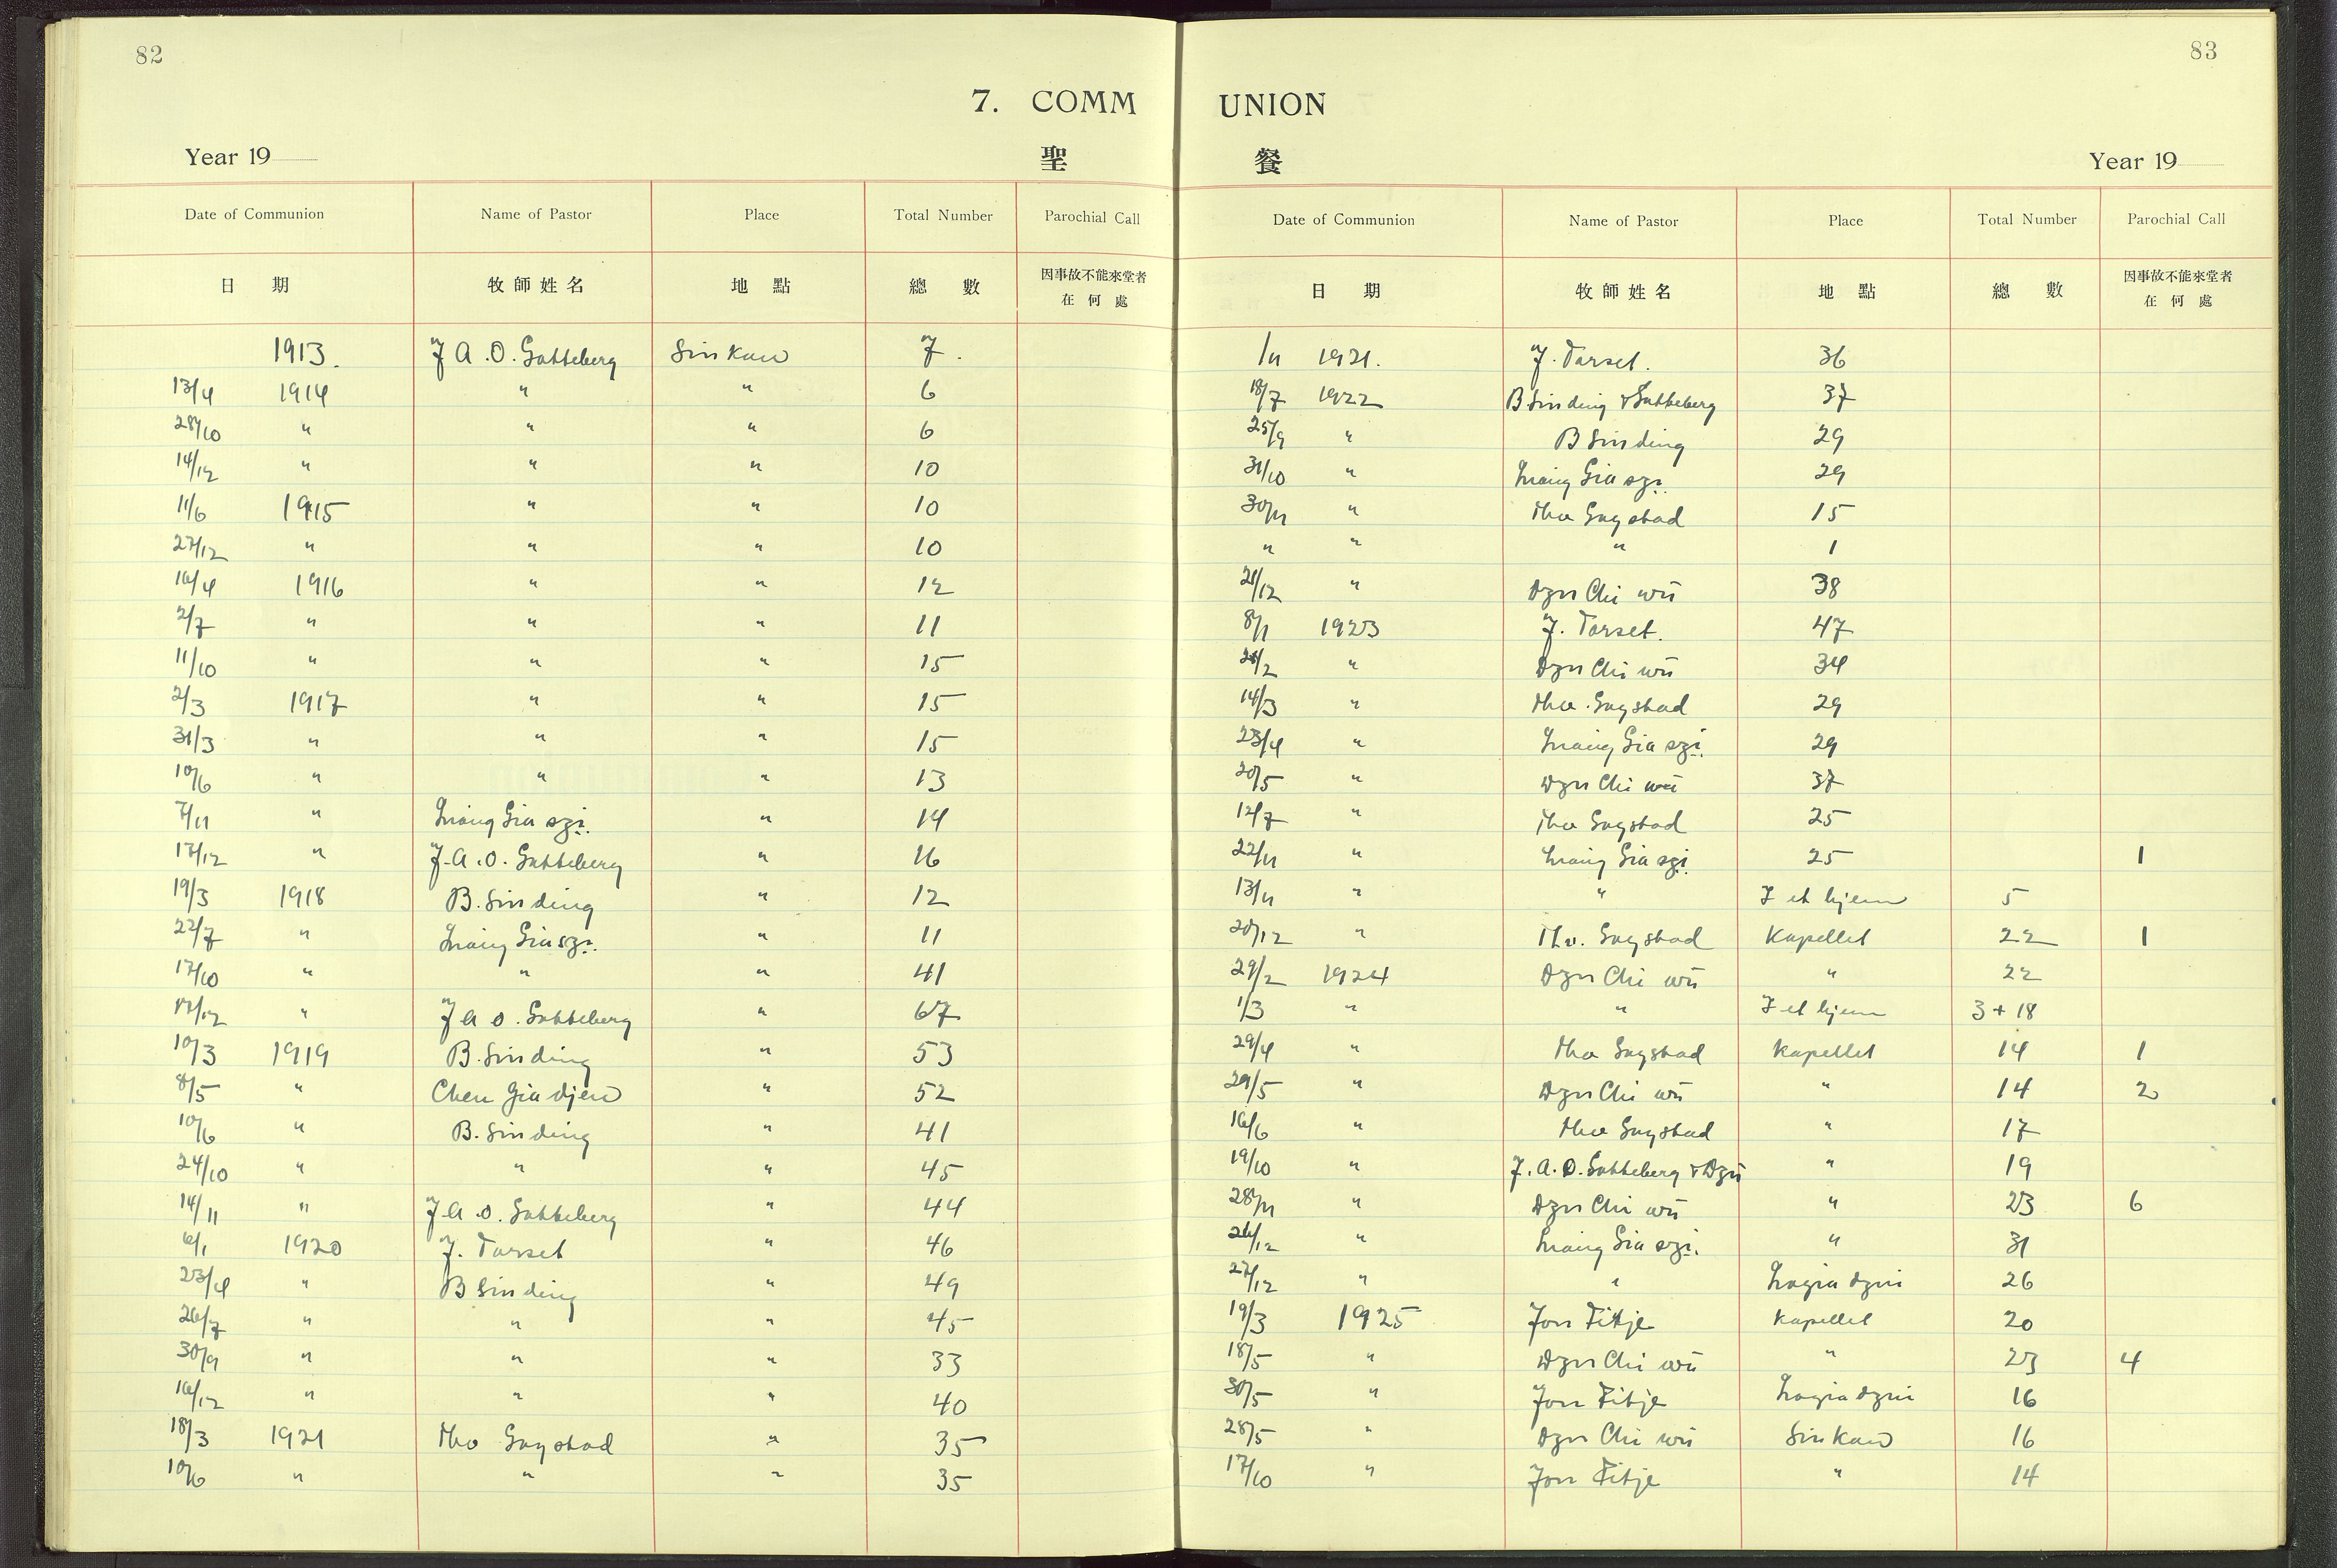 82
7. COMM
Year 19
聖
Date of Communion Name of Pastor Place Total Number Parochial Call
日 期 牧師姓名 地 點 總 數 因事故不能來堂者
在 何 處
1913. J A. O. Gotteberg Sinkaw 7.
13/4 1914 " " 6
28/10 " " " 6
14/12 " " " 10
11/6 1915 " " 10
27/12 " " " 10
16/4 1916 " " 12
2/7 " " " 11
11/10 " " " 15
2/3 1917 " " 15
31/3 " " " 15
10/6 " " " 13
7/11 " Gia szi. " 14
17/12 " J. A. O. Gotteberg " 16
19/3 1918 B. Sinding " 12
22/7 " Gia szi. " 11
17/10 " " " 41
17/12 " J A O. Gotteberg " 67
10/3 1919 B. Sinding " 53
8/5 " Chen Gia djen " 52
10/6 " B. Sinding " 41
24/10 " " " 45
14/11 " J A O. Gotteberg " 44
6/1 1920 J. Torset " 46
23/4 " B Sinding " 49
26/7 " " " 45
30/9 " " " 33
16/12 " " " 40
18/3 1921 Tho Gogstad " 35
10/6 " " " 35
83
UNION
餐 Year 19
Date of Communion Name of Pastor Place Total Number Parochial Call
日 期 牧師姓名 地 點 總 數 因事故不能來堂者
在 何 處
1/11 1921. J. Torset. 36
18/7 1922 B Sinding & Gotteberg 37
25/9 " B Sinding 29
31/10 " Gia szi. 29
30/11 " Tho Gogstad 15
" " " 1
21/12 " Dzu Chi wu 38
8/1 1923 J. Torset. 47
/2 " Dzu Chi wu 34
14/3 " Tho. Gogstad 29
23/4 " Gia szi. 29
20/5 " Dzu Chi wu 37
12/7 " Tho Gogstad 25
22/11 " Gia szi. 25 1
13/11 " " I et hjem 5
20/12 " Tho. Gogstad Kapellet 22 1
29/2 1924 Dzu Chi wu " 22
1/3 " " I et hjem 3 + 18
29/4 " Tho Gogstad Kapellet 14 1
29/5 " Dzu Chi wu " 14 2
16/6 " Tho Gogstad " 17
19/10 " J. A. O. Gotteberg & Dzu " 19
28/11 " Dzu Chi wu " 23 6
26/12 " Gia szi. " 31
27/12 " " 26
19/3 1925 Jon Fitje Kapellet 20
18/5 " Dzu Chi wu " 23 4
30/5 " Jon Fitje 16
28/5 " Dzu Chi wu Sinkaw 16
17/10 " Jon Fitje " 14